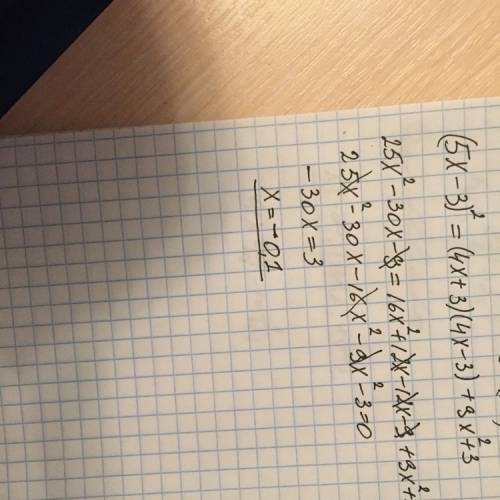 (5x-3)² = (4x+3)(4x-3) + 9x²+3
25x²-30x-9 = 16x²+12x-12x-9+9x²+
25x²-30x-16x²-9x²-3=0
-30x=3
x=-0,1